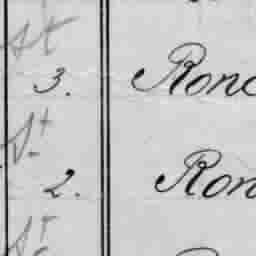 st
3. Rono
St
2. Ron
St